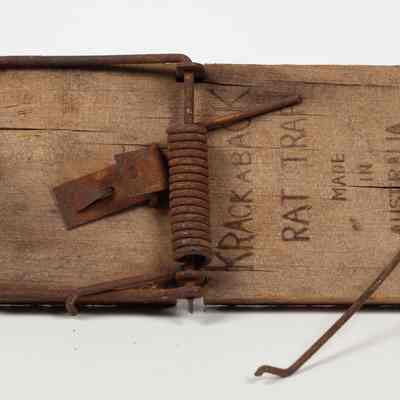 KRACKABACK
RAT TRAP
MADE
IN
AUSTRALIA